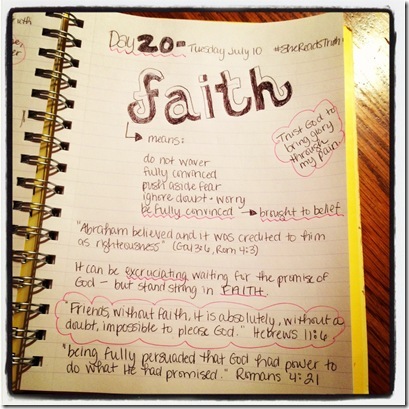 with
Day 20- Tuesday July 10 #SheReadsTruth
faith
means:
do not waver
fully convinced
push aside fear
ignore doubt + worry
be fully convinced → brought to belief.
Trust God to
bring glory
through
my pain.
"Abraham believed and it was credited to him
as righteousness" (Gal 3:6, Rom 4:3)
It can be excruciating waiting for the promise of
God - but stand strong in FAITH.
"Friends, without faith, it is absolutely, without a
doubt, impossible to please God." Hebrews 11:6
"being fully persuaded that God had power to
do what He had promised." Romans 4:21